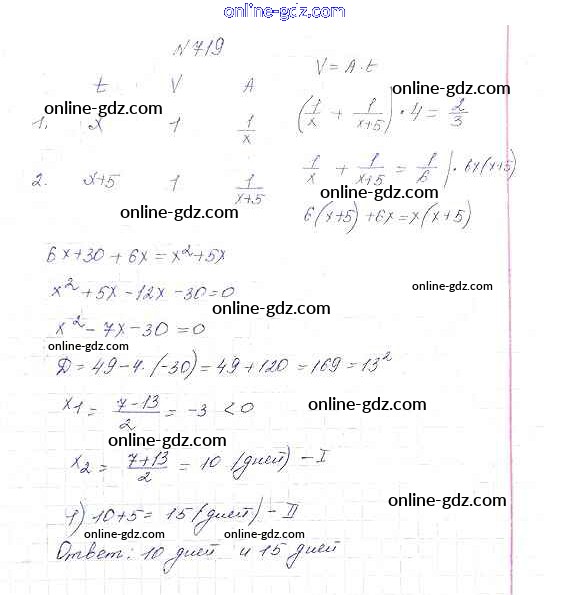 online-gdz.com
N 719
V = A · t
t V A
online-gdz.com
online-gdz.com
1. x 1 1/x (1/x + 1/(x+5)) · 4 = 2/3
2. x+5 1 1/(x+5) 1/x + 1/(x+5) = 1/6 | · 6x(x+5)
online-gdz.com
online-gdz.com
6(x+5) + 6x = x(x+5)
6x+30 + 6x = x² + 5x
online-gdz.com
x² + 5x - 12x - 30 = 0
online-gdz.com
x² - 7x - 30 = 0
online-gdz.com
Д = 49 - 4·(-30) = 49 + 120 = 169 = 13²
x1 = (7-13)/2 = -3 < 0
online-gdz.com
online-gdz.com
x2 = (7+13)/2 = 10 (дней) - I
online-gdz.com
1) 10+5 = 15 (дней) - II
online-gdz.com
online-gdz.com
Ответ: 10 дней и 15 дней
online-gdz.com